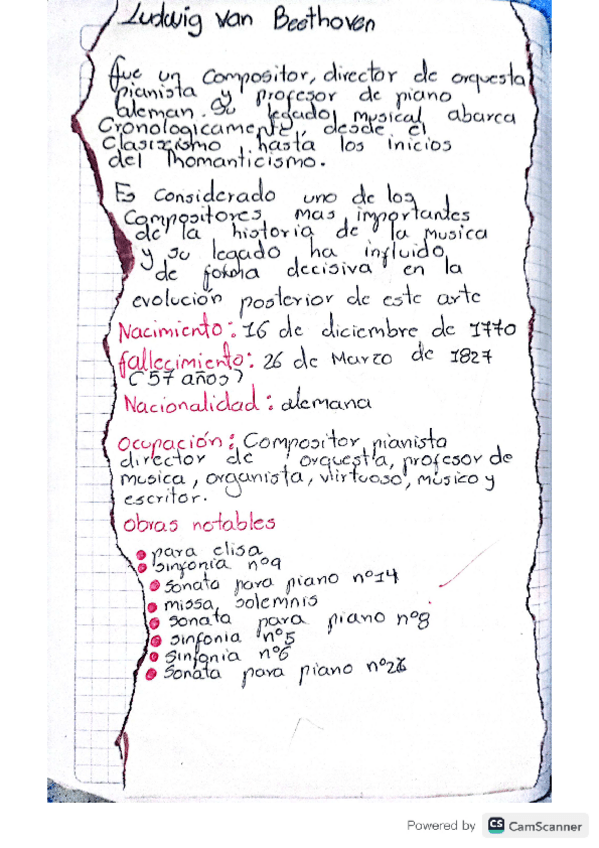 Ludwig van Beethoven
fue un compositor, director de orquesta
pianista y profesor de piano
aleman. Su legado musical abarca
Cronologicamente, desde el
Clasicismo hasta los inicios
del Rhomanticismo.
Es considerado uno de los
Compositores mas importantes
de la historia de la musica
y su legado ha influido
de forma decisiva en la
evolución posterior de este arte
Nacimiento: 16 de diciembre de 1770
fallecimiento: 26 de Marzo de 1827
(57 años)
Nacionalidad: alemana
Ocupación: Compositor, pianista
director de orquesta, profesor de
musica, organista, virtuoso, músico y
escritor.
Obras notables
para elisa
Sinfonia nº9
Sonata para piano nº14
missa solemnis
sonata para piano nº8
sinfonia nº5
Sinfonia nº6
Sonata para piano nº26
Powered by CS CamScanner